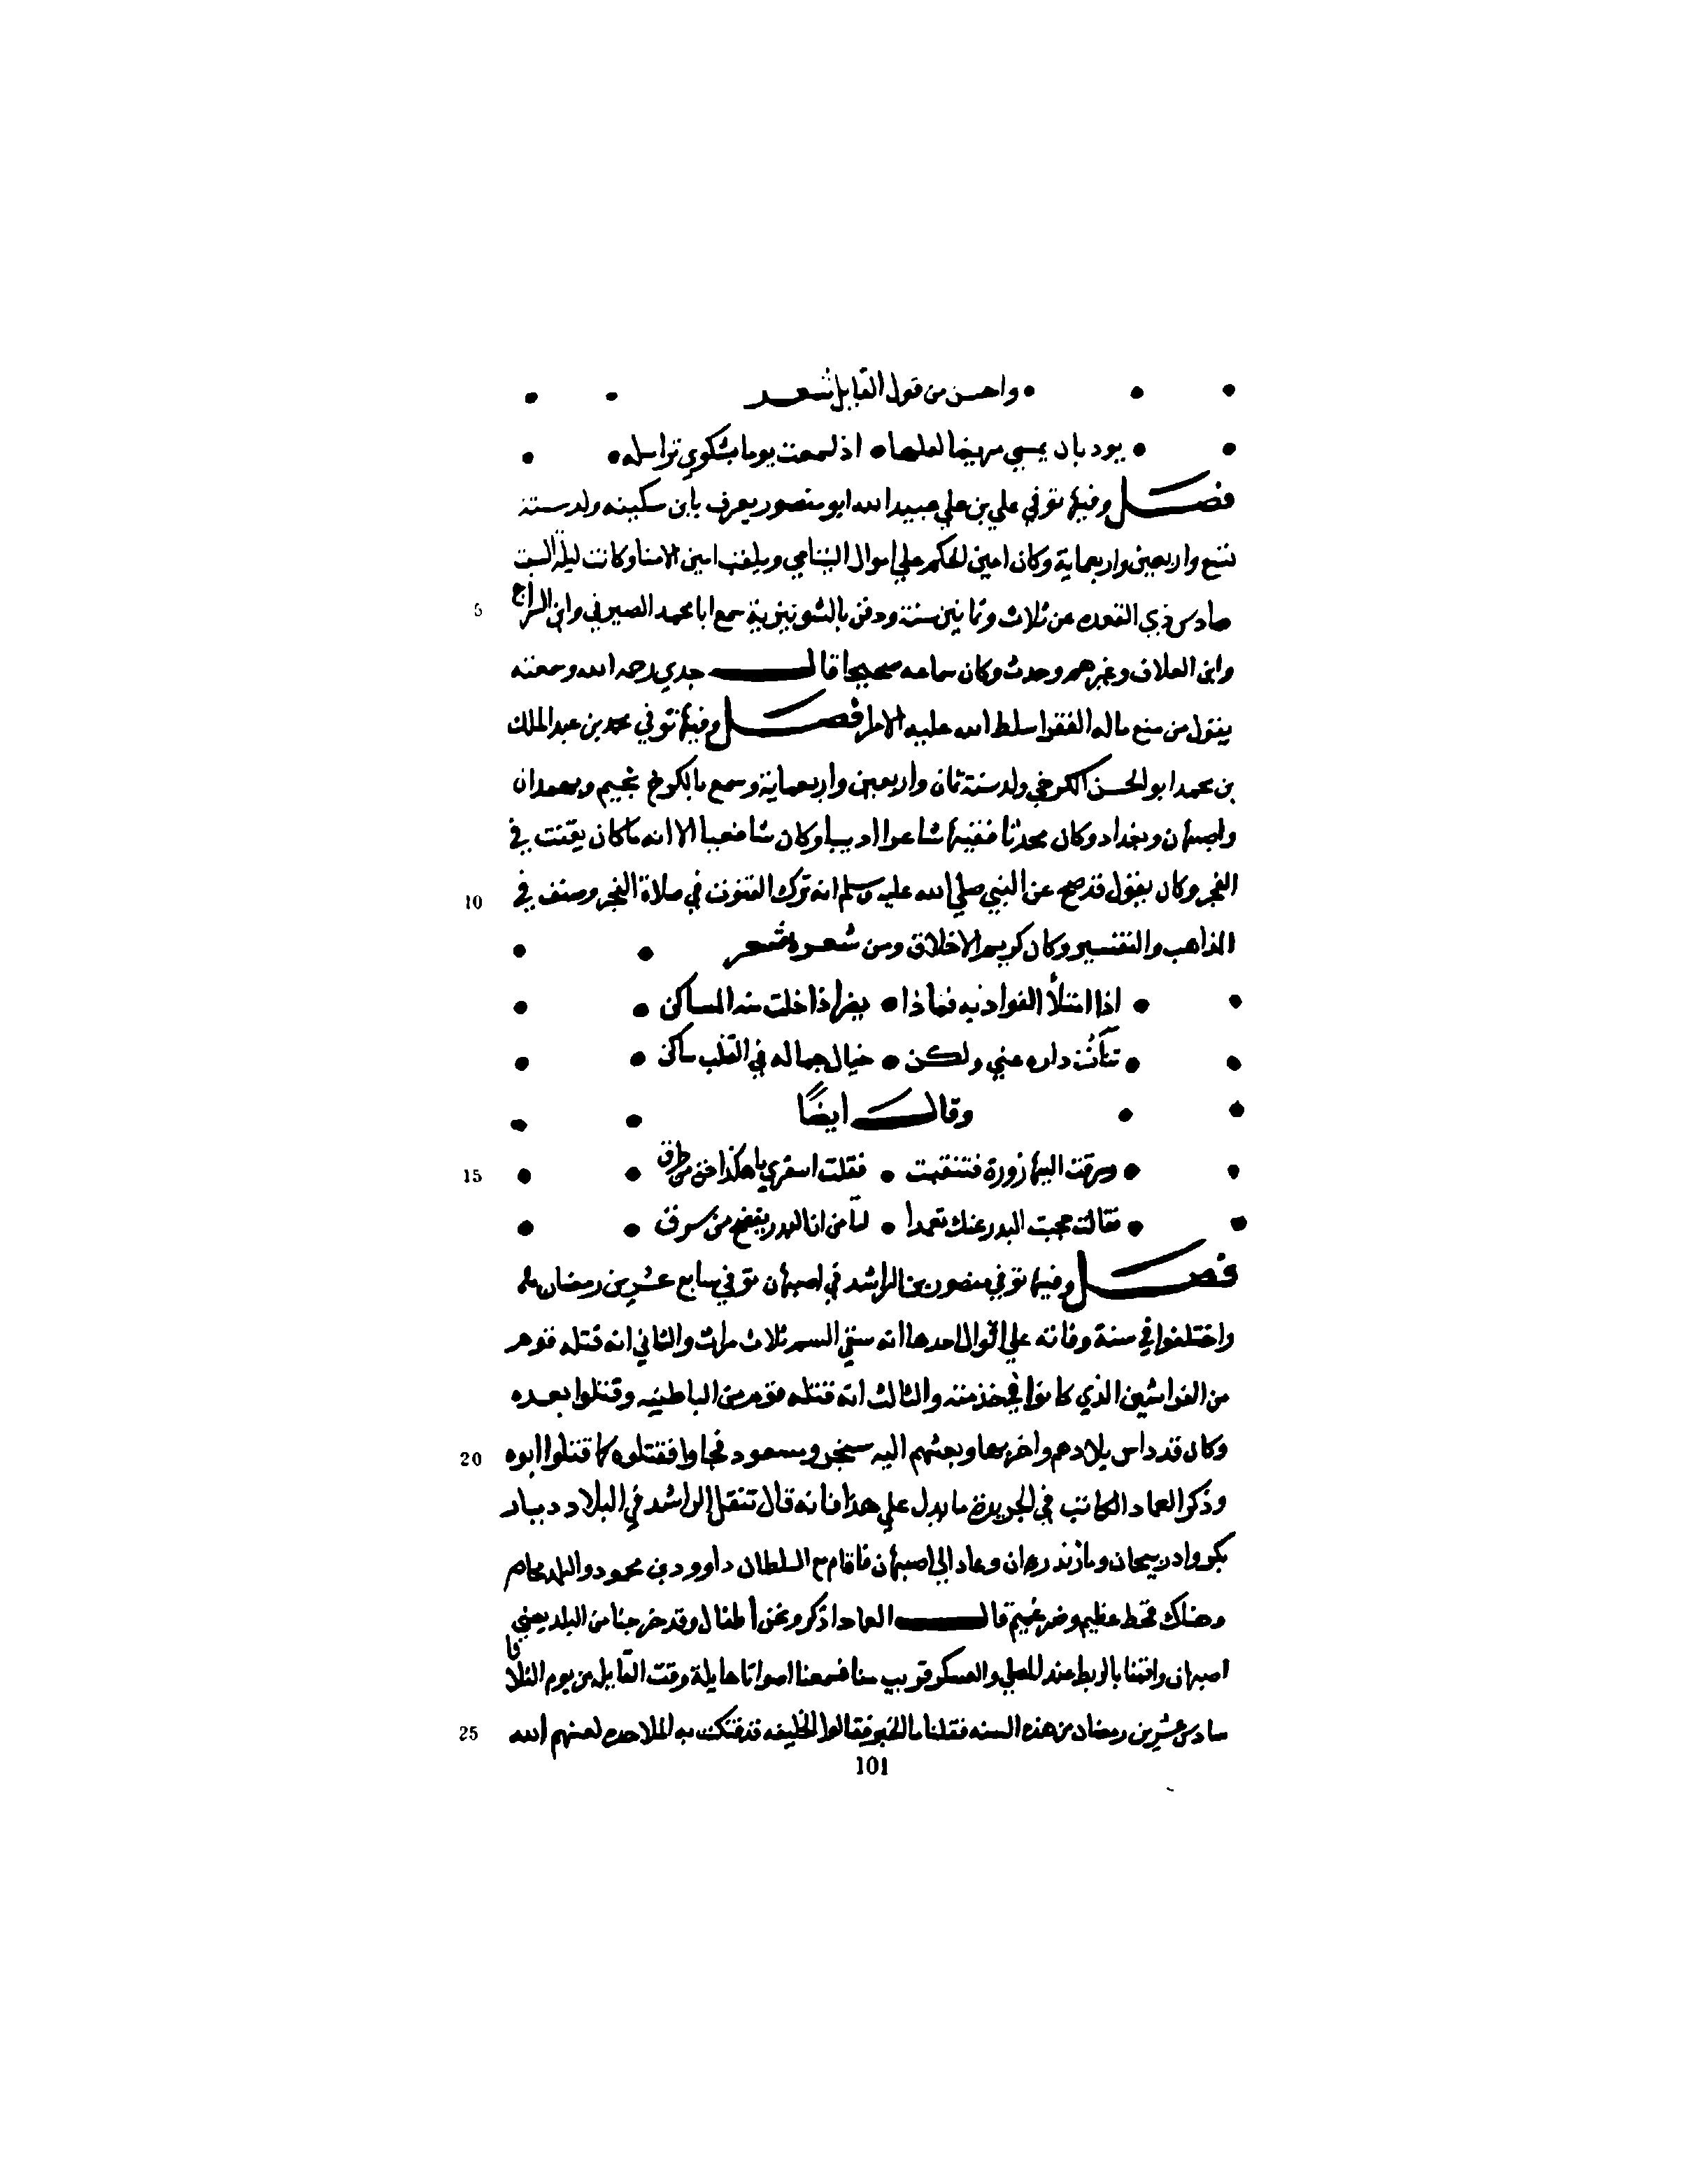 واحسن من قول القايل شعر
يود بان يمسي مريضا لعلها اذا سمعت يوما بشكوي تراسله
فصل وفيها توفي علي بن علي عبيد الله ابو منصور يعرف بابن سكينه ولد سنة
تسع واربعين واربعماية وكان امين الحكم علي اموال اليتامي ويلقب امين الامنا وكانت ليلة السبت
سادس ذي القعده عن ثلاث وثمانين سنة ودفن بالشونيزية سمع ابا محمد الصيرفي وابن السراج
5
وابن العلاف وغيرهم وحدث وكان سماعه صحيحا قال جدي رحمه الله وسمعته
يقول من منع ماله الفقرا سلط الله عليه الامرا فصل وفيها توفي محمد بن عبد الملك
بن محمد ابو الحسن الكرخي ولد سنة ثمان واربعين واربعماية وسمع بالكرخ نجيم وبهمدان
واصبهان وبغداد وكان محدثا فقيها شاعرا اديبا وكان شافعيا الا انه ما كان يقنت في
الفجر وكان يقول قد صح عن النبي صلي الله عليه وسلم انه ترك القنوت في صلاة الفجر وصنف في
10
المذاهب والتفسير وكان كريم الاخلاق ومن شعره شعر
اذا امتلأ الفواد به فماذا يضر اذا خلت منه المساكن
تناءت داره عني ولكن خيال جماله في القلب ساكن
وقال ايضًا
وسرقت اليها زورة فتنقبت فقلت اسفري يا هكذا من طرق
15
فقالت حجبت البدر عنك تعمدا لنا من انا البدر يفضح من سرق
فصل وفيها توفي منصور بن الراشد في اصبهان توفي سابع عشرين رمضان
واختلفوا في سنة وفاته علي اقوال احدها انه سقي السم ثلاث مرات والثاني انه قتله قوم
من الفراشين الذي كانوا في خدمته والثالث انه قتله قوم من الباطنيه وقتلوا بعده
وكان قد داس بلادهم واخربها وبعثهم اليه سنجر ومسعود فجاوا فقتلوه كما قتلوا ابوه
20
وذكر العماد الكاتب في الجريدة ما يدل علي هذا فانه قال تنقل الراشد في البلاد ديار
بكر وادربيجان ومازندران وعاد الي اصبهان فاقام مع السلطان داوود بن محمود والبلد محاصر
وهناك قحط عظيم وضر عميم قال العماد اذكر ونحن أطفال وقد خرجنا من البلد يعني
اصبهان واقمنا بالربط عند المصلي والعسكر قريب منا فسمعنا اصواتا هايلة وقت القايله من يوم الثلاثا
سادس عشرين رمضان من هذه السنه فقلنا ما الخبر فقالوا الخليفه قد فتكت به الملاحده لعنهم الله
25
101